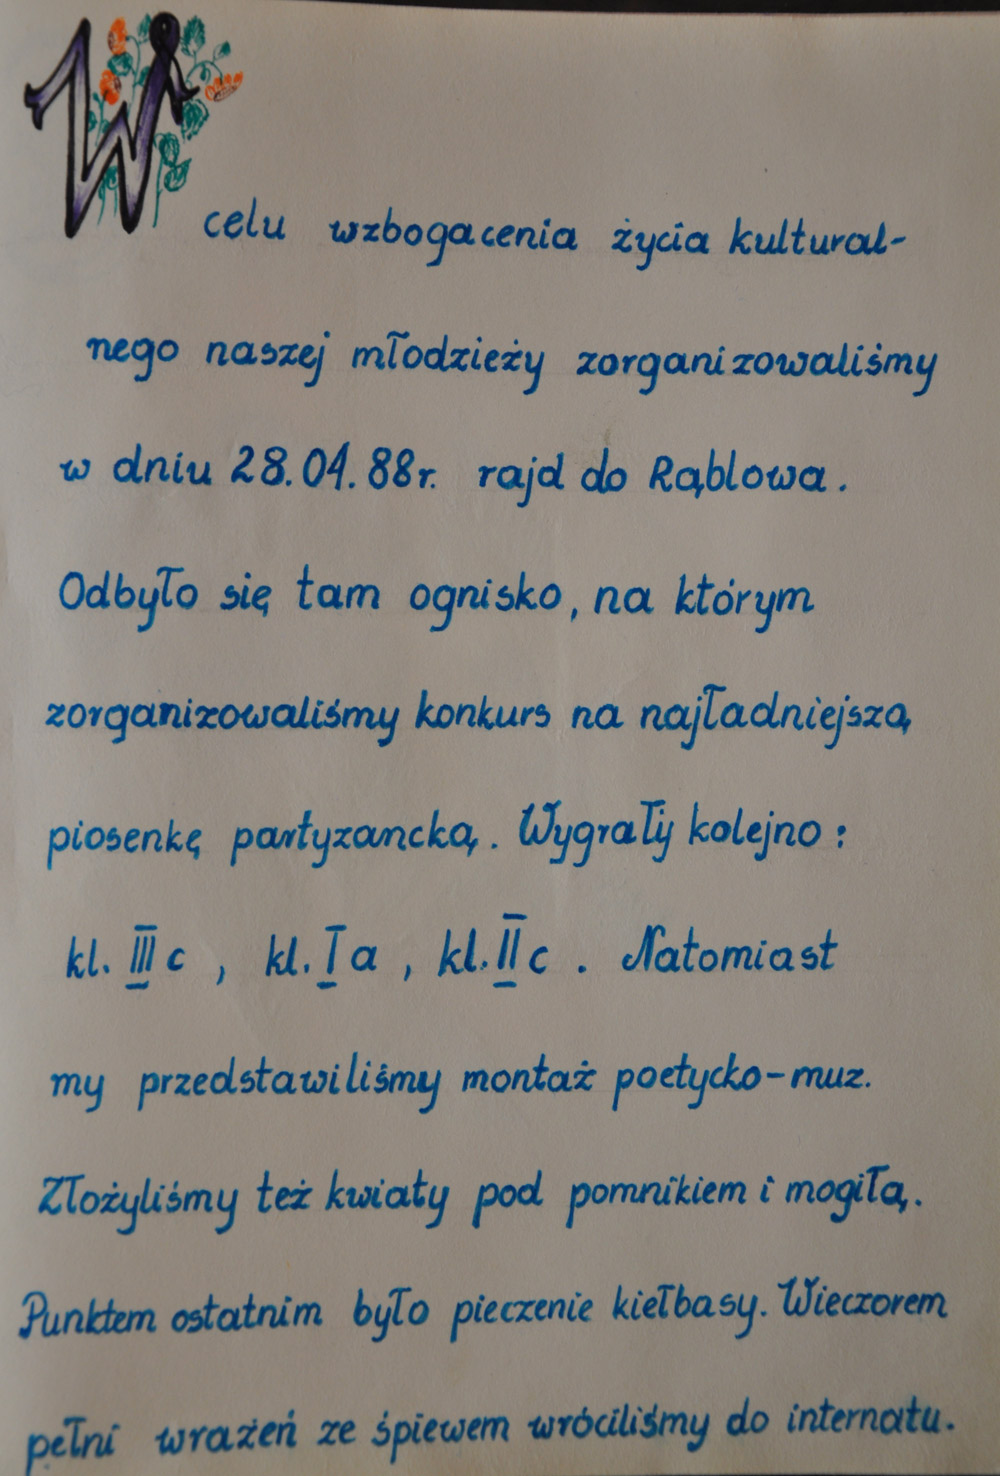 W celu wzbogacenia życia kultural-
nego naszej młodzieży zorganizowaliśmy
w dniu 28.04.88r. rajd do Rąblowa.
Odbyło się tam ognisko, na którym
zorganizowaliśmy konkurs na najładniejszą
piosenkę partyzancką. Wygrały kolejno:
kl. III c, kl. I a, kl. II c. Natomiast
my przedstawiliśmy montaż poetycko-muz.
Złożyliśmy też kwiaty pod pomnikiem i mogiłą.
Punktem ostatnim było pieczenie kiełbasy. Wieczorem
pełni wrażeń ze śpiewem wróciliśmy do internatu.